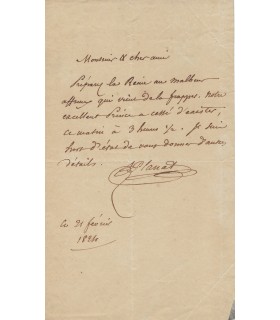 Monsieur & cher ami
Préparez la Reine au malheur
affreux qui vient de la frapper. Notre
excellent Prince a cessé d'exister,
ce matin à 3 heures ½. Je suis
hors d'état de vous donner d'autres
détails.
Planat
Ce 21 février
1824